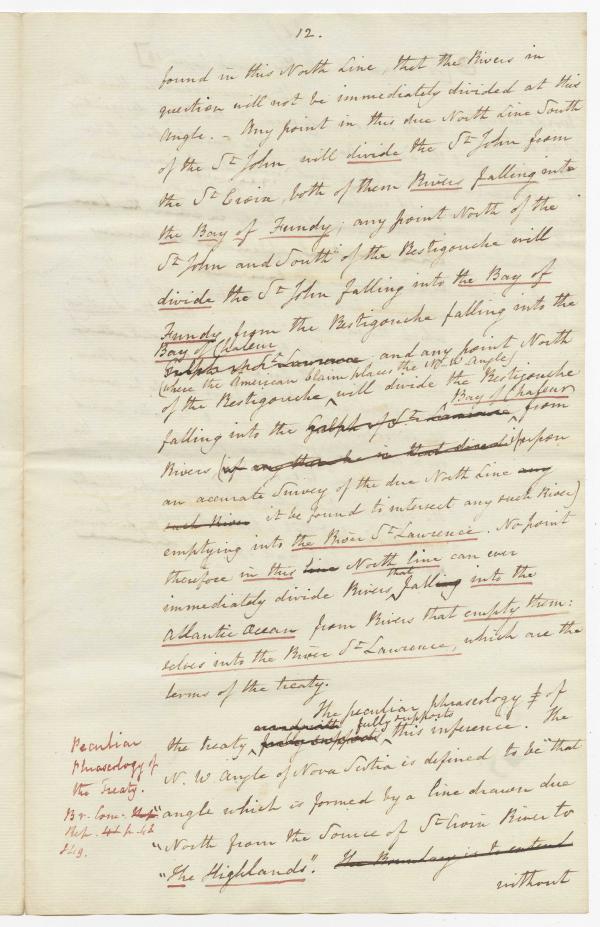 12.
found in this North Line, that the Rivers in
question will not be immediately divided at this
Angle. - Any point in this due North Line South
of the St John will divide the St John from
the St Croix, both of them Rivers falling into
the Bay of Fundy; any point North of the
St John and South of the Restigouche will
divide the St John falling into the Bay of
Fundy from the Restigouche falling into the
Bay of Chaleur
Gulph of St Lawrence, and any point North
(where the American Claim places the N. W. Angle)
of the Restigouche will divide the Restigouche
Bay of Chaleur
falling into the Gulph of St Lawrence from
Rivers (if any there be in that direction) (upon
an accurate Survey of the due North Line any
such River it be found to intersect any such River)
emptying into the River St Lawrence. No point
therefore in this line North line can ever
that
immediately divide Rivers falling into the
Atlantic Ocean from Rivers that empty them:
selves into the River St Lawrence, which are the
terms of the treaty.
The peculiar phraseology of
fully supports
the treaty fully supports this inference. The
N. W Angle of Nova Scotia is defined to be "that
"angle which is formed by a line drawn due
"North from the Source of St Croix River to
"The Highlands". The Boundary is to extend
without
Peculiar
Phraseology of
the Treaty.
Br. Com.
Rep. p. 48
&49.